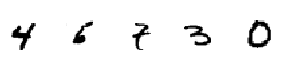 4 6 7 3 0